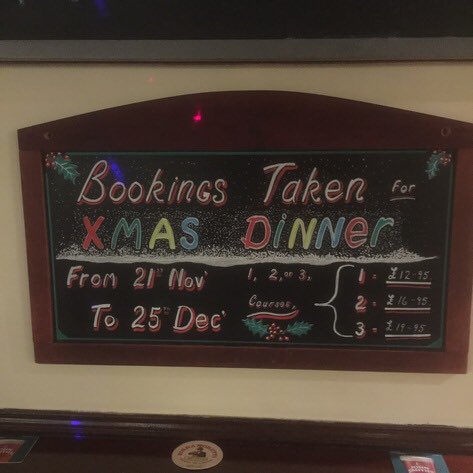 Bookings Taken for
XMAS DINNER
From 21st Nov'
1, 2, or 3,
Courses,
To 25th Dec'
1 = £12-95
2 = £16-95
3 = £19-95